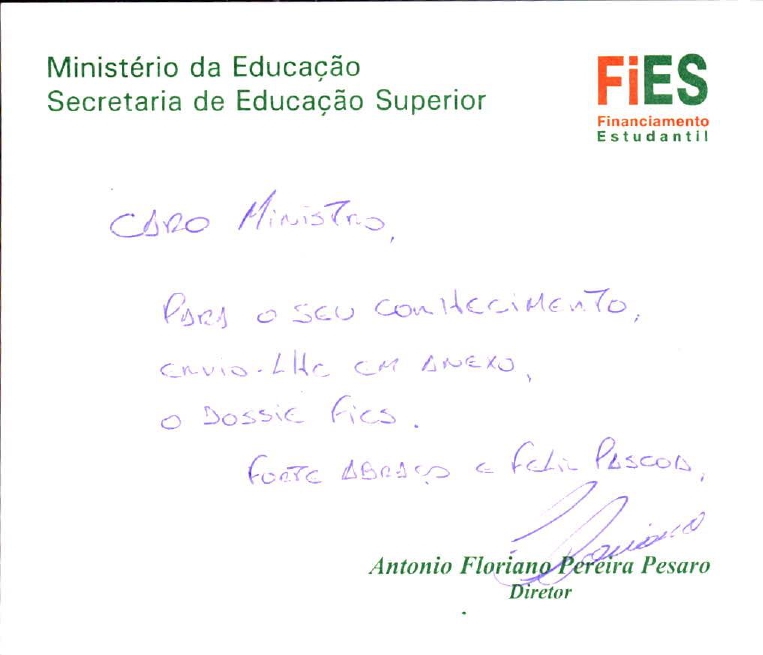 Ministério da Educação
Secretaria de Educação Superior
FiES
Financiamento
Estudantil
CARO MINISTRO,
PARA O SEU CONHECIMENTO,
ENVIO-LHE EM ANEXO,
O DOSSIE FIES.
FORTE ABRAÇO E FELIZ PASCOA,
Floriano
Antonio Floriano Pereira Pesaro
Diretor